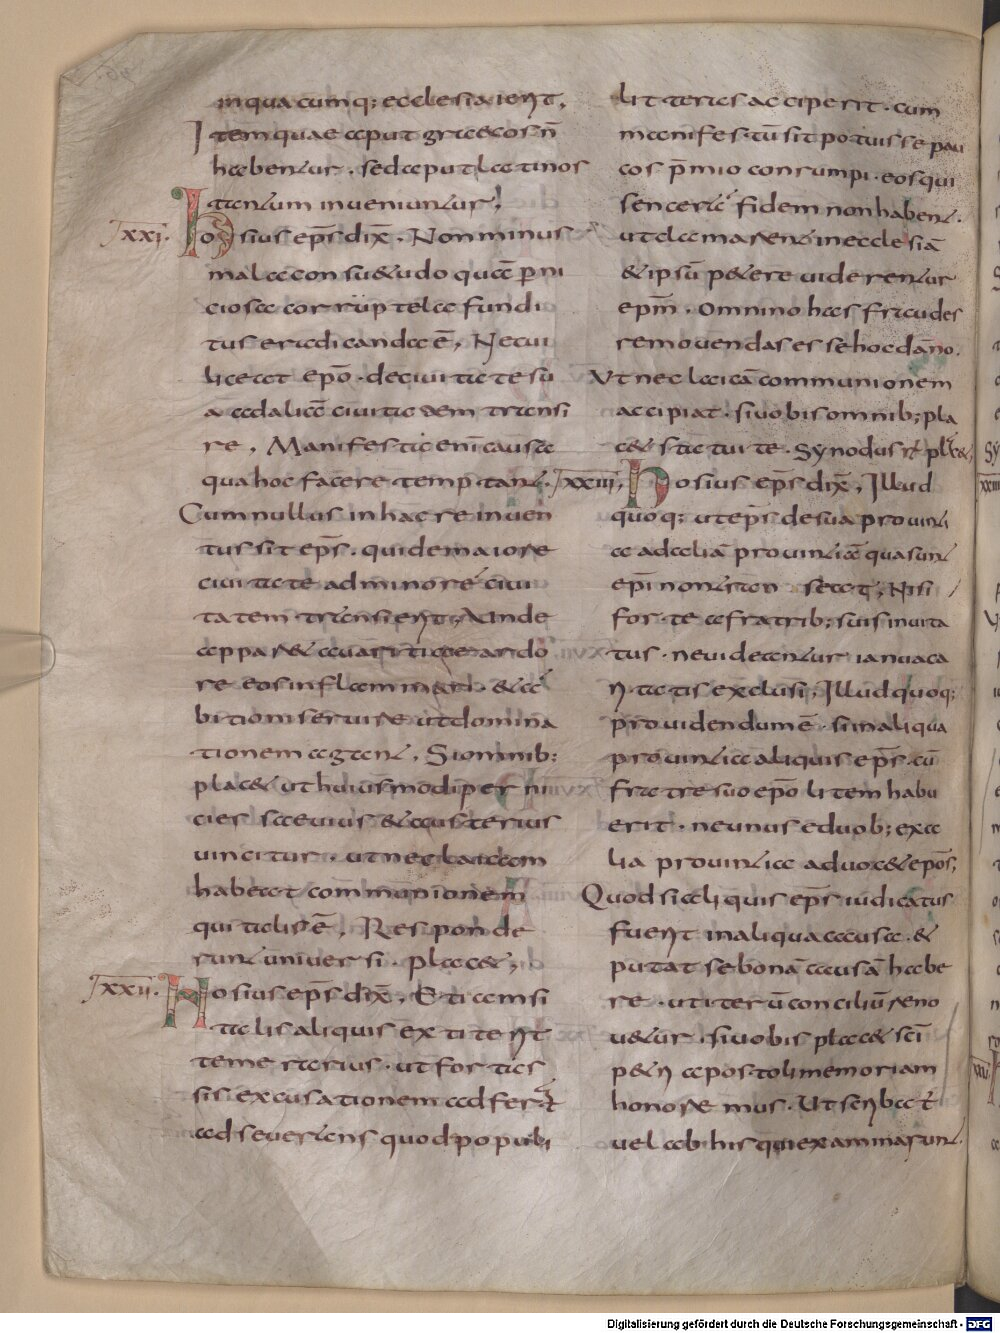 in qua cumq; ecclesia ient,
Item quae caput grecos n̄
habentur. sed aput latinos
tantum inveniuntur,
xxi. Hosius ep̄s dix̄. Non minus
mala consuetudo quā p̄ni
ciosa corruptela fundi
tus eradicanda ē, Ne cui
liceat ep̄o. de civitate su
a ad aliā civitatem transi
re, Manifesta enī causa
qua hoc facere temptant.
Cum nullus in hac re inven
tus sit ep̄s. qui de maiore
civitate ad minorē civi
tatem transient, Unde
apparet avaritiae ardo
re eos inflammari. et a
bitioni servire ut domina
tionem agant, Si omnib;
placet ut huiusmodi per ni
cies saevius et austerius
vincitur. ut nec laicam
habeat communionem
qui talis ē, Respon de
runt universi. placet,
xxii. Hosius ep̄s dix̄, Etiam si
talis aliquis extitent
temerarius. ut fortas
sis excusationem adferat
ad severans quod populi
litteras acciperit. cum
manifestū sit potuisse pau
cos p̄mio conrumpi. eos qui
sencerā fidem non habent.
ut clamarent in ecclesiā
et ipsū petere viderentur
ep̄m. Omnino has fraudes
removendas esse hoc dāno.
Ut nec laicā communionem
accipiat. si vobis omnib; pla
cet statuite. Synodus r̄ placet,
xxiii. Hosius ep̄s dix̄, Illud
quoq; ut ep̄s de sua provinti
a ad aliā provintiā qua sunt
ep̄i non transeat, Nisi
forte a fratrib; suis invita
tus. ne videantur ianua ca
ritatis exclusi, Illud quoq;
providendum ē. si in aliqua
provintia aliquis ep̄s cū
fratre suo ep̄o litem habu
erit. ne unus e duob; ex a
lia provintia advocet ep̄os,
Quod si aliquis ep̄s iudicatus
fuerit in aliqua causa. et
putat se bonā causā habe
re. ut iterū conciliū reno
vetur. si vobis placet sc̄i
petri apostoli memoriam
honoremus. Ut scribat̄
vel ab his qui examinarunt.
Digitalisierung gefördert durch die Deutsche Forschungsgemeinschaft - DFG